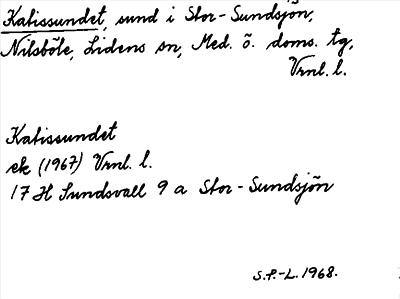 Katissundet, sund i Stor-Sundsjön,
Nilsböle, Lidens sn, Med. ö. doms. tg,
Vrnl. l.
Katissundet
ek (1967) Vrnl. l.
17 H Sundsvall 9 a Stor-Sundsjön
S.P.-L. 1968.